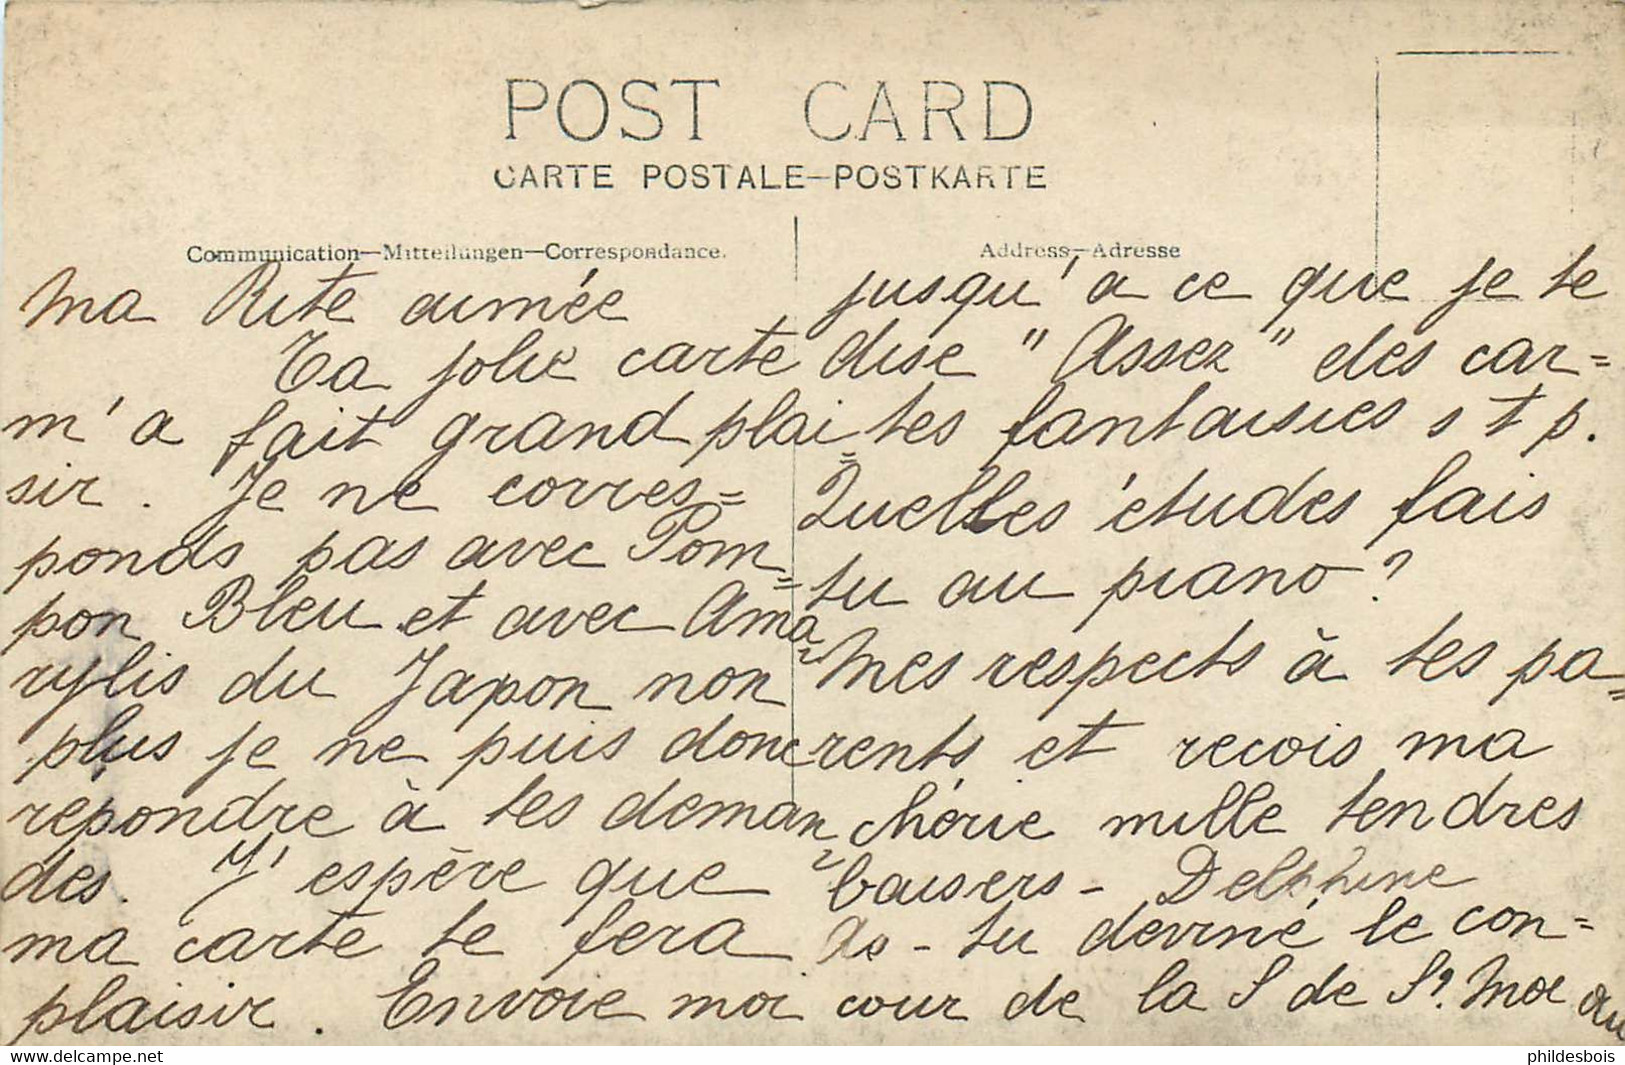 POST CARD
CARTE POSTALE—POSTKARTE
Communication—Mitteilungen—Correspondance.
Address—Adresse
Ma Rite aimée
Ta jolie carte
m'a fait grand plai=
sir. Je ne corres=
ponds pas avec Pom=
pon Bleu et avec Ama=
rylis du Japon non
plus je ne puis donc
répondre à tes deman=
des. J'espère que
ma carte te fera
plaisir. Envoie moi
jusqu'a ce que je te
dise "Assez" des car=
tes fantaisies s t p.
Quelles études fais
tu au piano?
Mes respects à tes pa=
rents et recois ma
chérie mille tendres
baisers - Delphine
As-tu deviné le con=
cour de la S de St. Moi au
delcampe.net
phildesbois